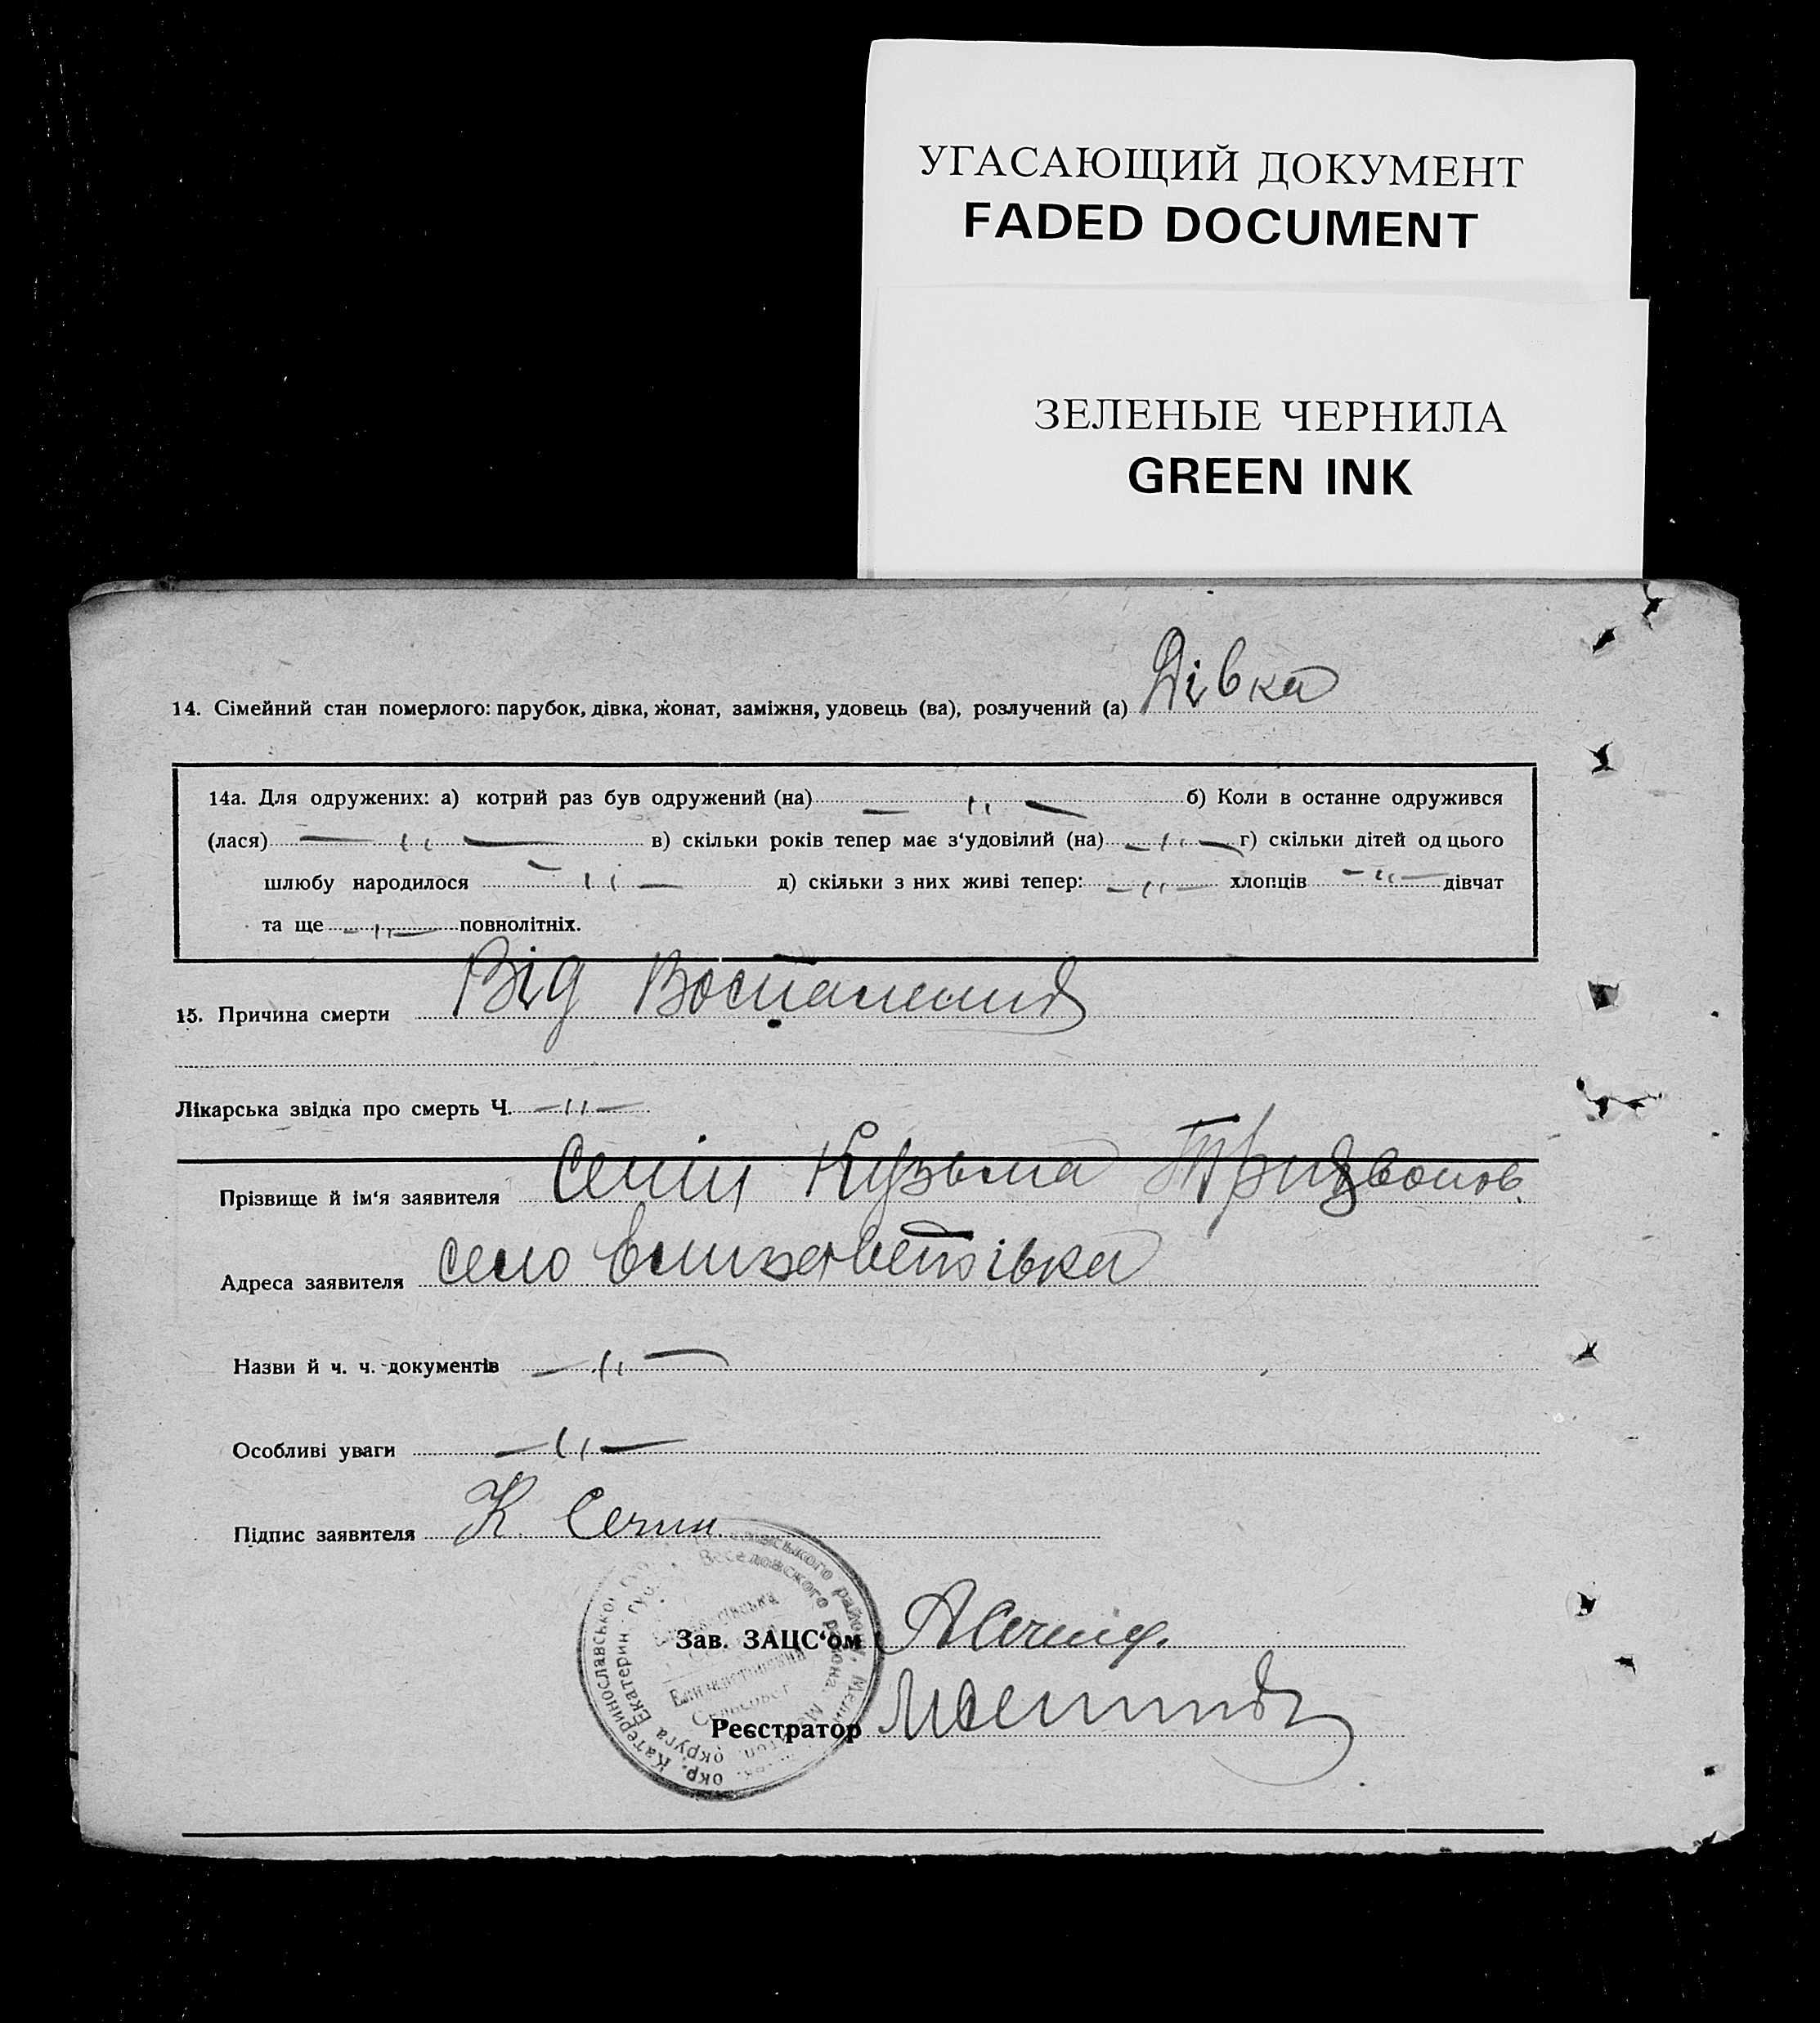 УГАСАЮЩИЙ ДОКУМЕНТ
FADED DOCUMENT
ЗЕЛЕНЫЕ ЧЕРНИЛА
GREEN INK
14. Сімейний стан померлого: парубок, дівка, жонат, заміжня, удовець (ва), розлучений (а) Дівка
14а. Для одружених: а) котрий раз був одружений (на) — ״ — б) Коли в останне одружився
(лася) — ״ — в) скільки років тепер має з‘удовілий (на) — ״ — г) скільки дітей од цього
шлюбу народилося — ״ — д) скільки з них живі тепер: — ״ — хлопців — ״ — дівчат
та ще — ״ — повнолітніх.
15. Причина смерти Від Воспаления
Лікарська звідка про смерть Ч. — ״ —
Прізвище й ім‘я заявителя Кузьма
Адреса заявителя село Елизаветовівка
Назви й ч. ч. документів — ״ —
Особливі уваги — ״ —
Підпис заявителя К.
Зав. ЗАЦС‘ом
Реєстратор
окр. Катеринославської
району
Веселовского района
округа Екатерин. губ.
Сельсовет